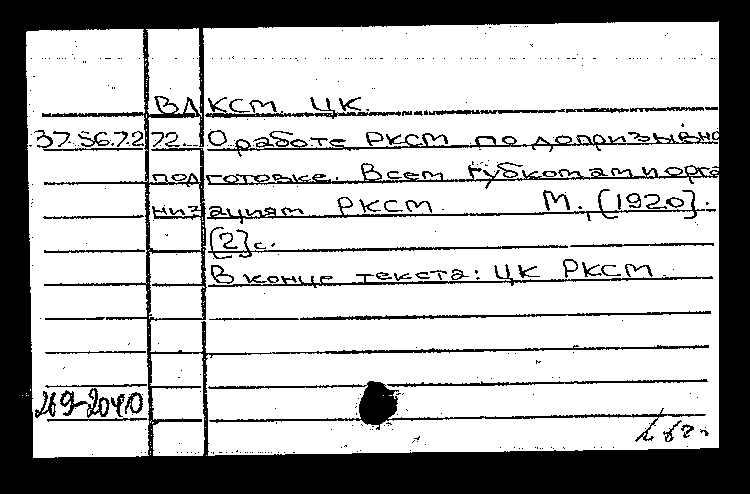 ВЛКСМ. ЦК.
37.56.7.2 72. О работе РКСМ по допризывно
подготовке. Всем губкомам и орга
низациям РКСМ. М., [1920].
[2] с.
В конце текста: ЦК РКСМ.
269-2040